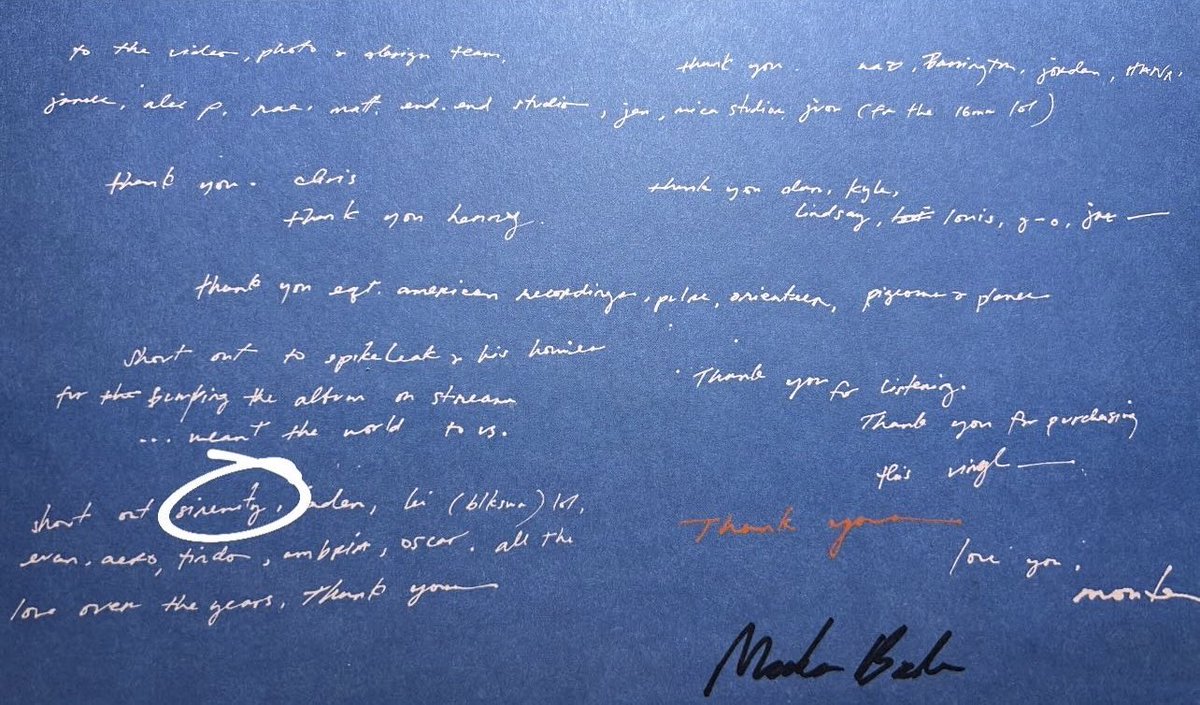 to the video, photo & design team,
thank you. naz, Barrington, jordan, HANA,
alec p, rae, matt, end.end studio, jen, mica studios jvon (for the 16mm lol)
thank you. chris
thank you henney.
thank you dan, kyle,
lindsay, louis, y-o, jae —
thank you eqt. american recordings, pulse, orienteer, pigeons & planes
shout out to spikeleak & his homies
for the bumping the album on stream
... meant the world to us.
Thank you for listening.
Thank you for purchasing
this vinyl —
shout out sirenity, lei (blkswn) lol,
evan, aero, tindo, oscar, all the
love over the years. Thank you
Thank you
love you,
monte